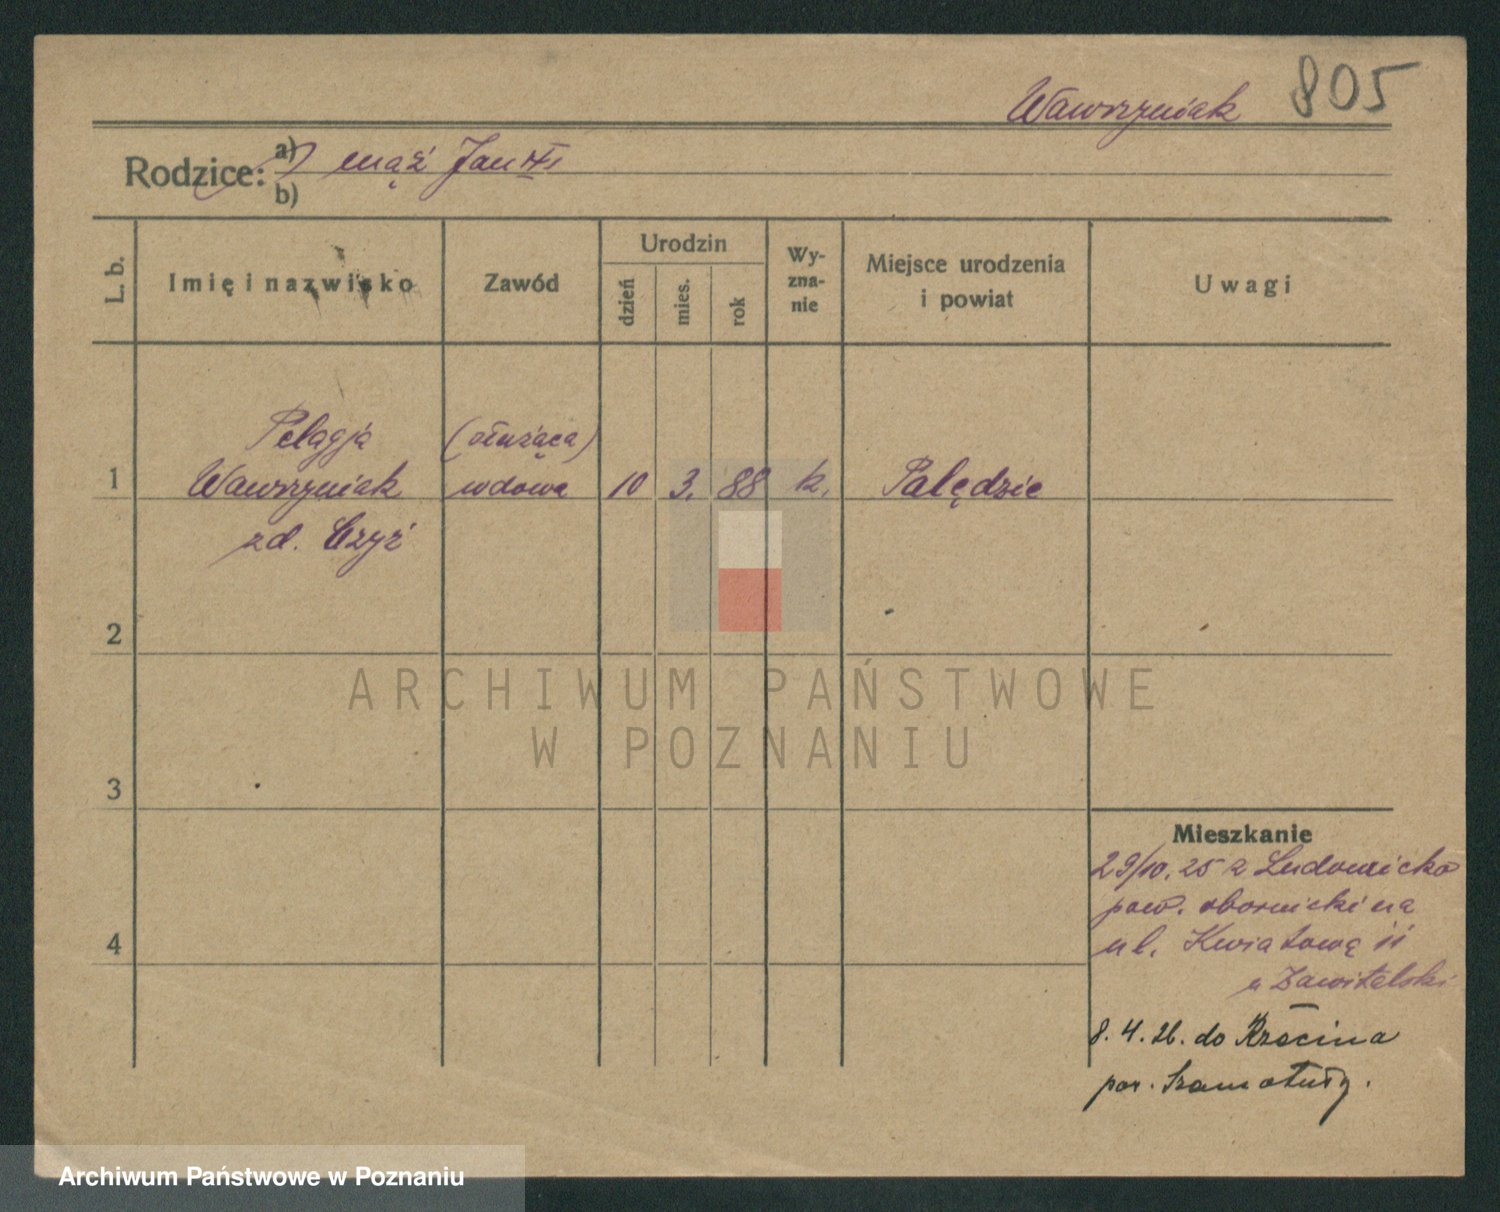 Wawrzyniak 805
Rodzice: a) mąż Jan
b)
L. b.
Imię i nazwisko
Zawód
Urodzin
dzień
mies.
rok
Wy-
zna-
nie
Miejsce urodzenia
i powiat
Uwagi
Pelagja (służąca)
1 Wawrzyniak wdowa 10 3. 88 k. Palędzie
zd. Czyż
2
ARCHIWUM PAŃSTWOWE
W POZNANIU
3
Mieszkanie
29/10.25 z Ludomicko
pow. obornicki na
4
ul. Kwiatową 11
u Zawitalski
8. 4. 26. do Rzecina
pow. Szamotuły.
Archiwum Państwowe w Poznaniu